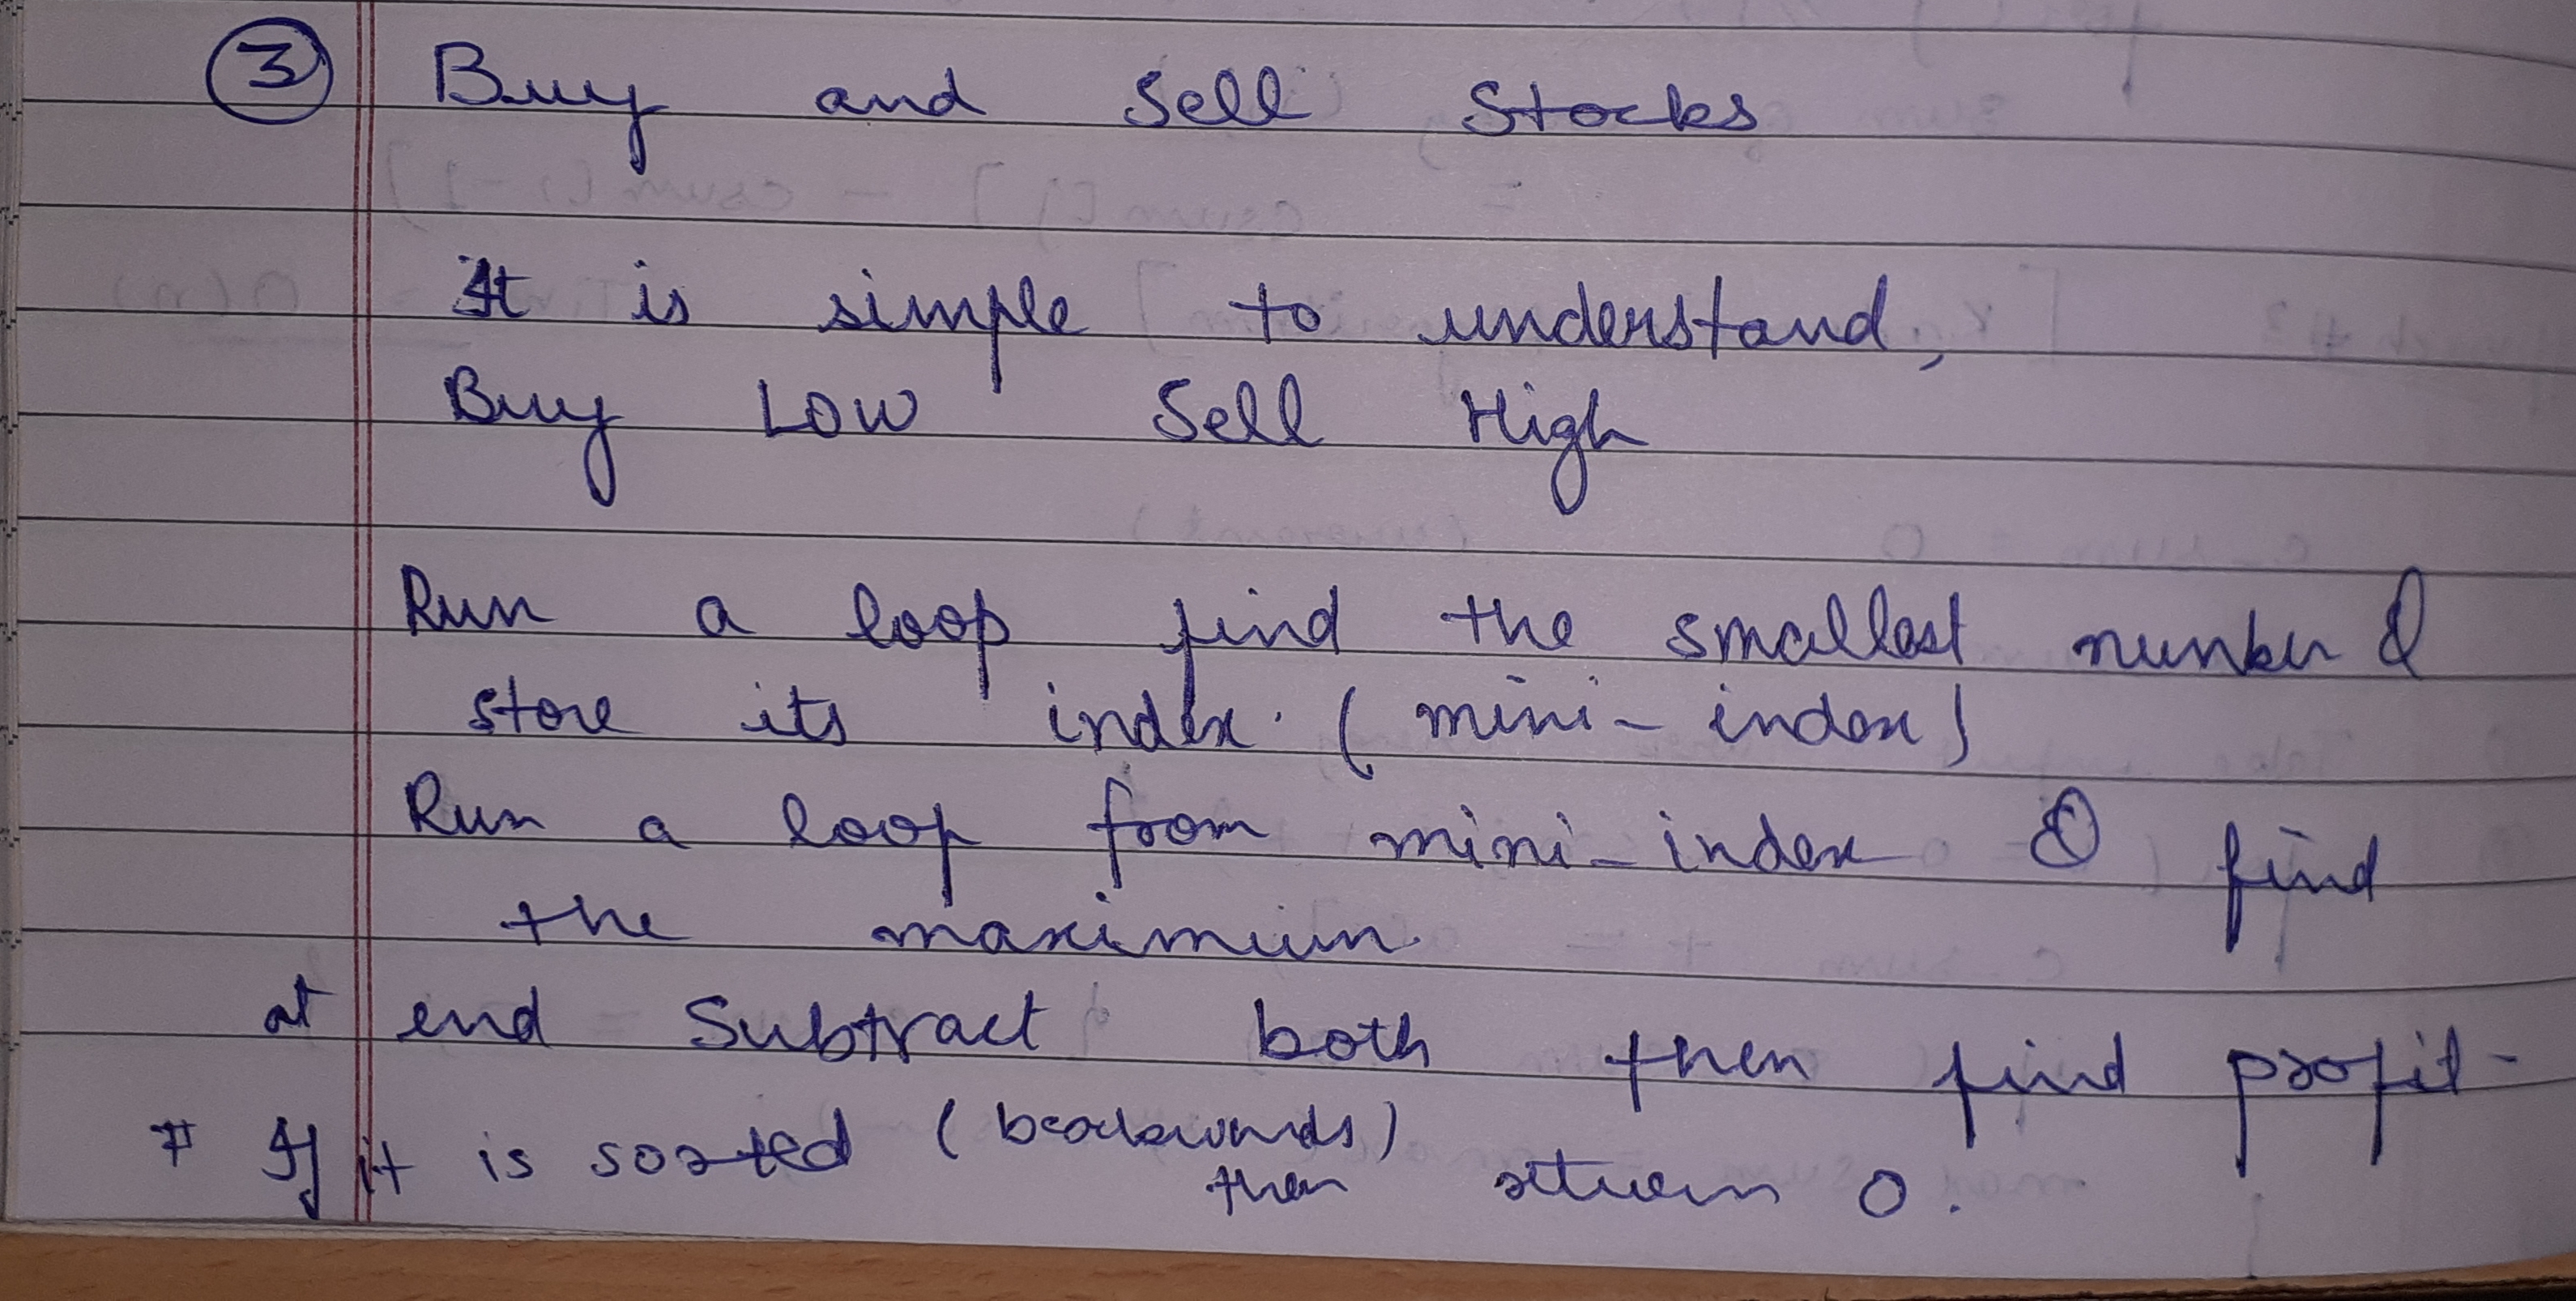 ③ Buy and Sell Stocks
It is simple to understand,
Buy Low Sell High
Run a loop find the smallest number &
store its index. (mini-index)
Run a loop from mini-index & find
the maximum.
at end Subtract both then find profit-
# If it is sorted (backwards)
then return 0.